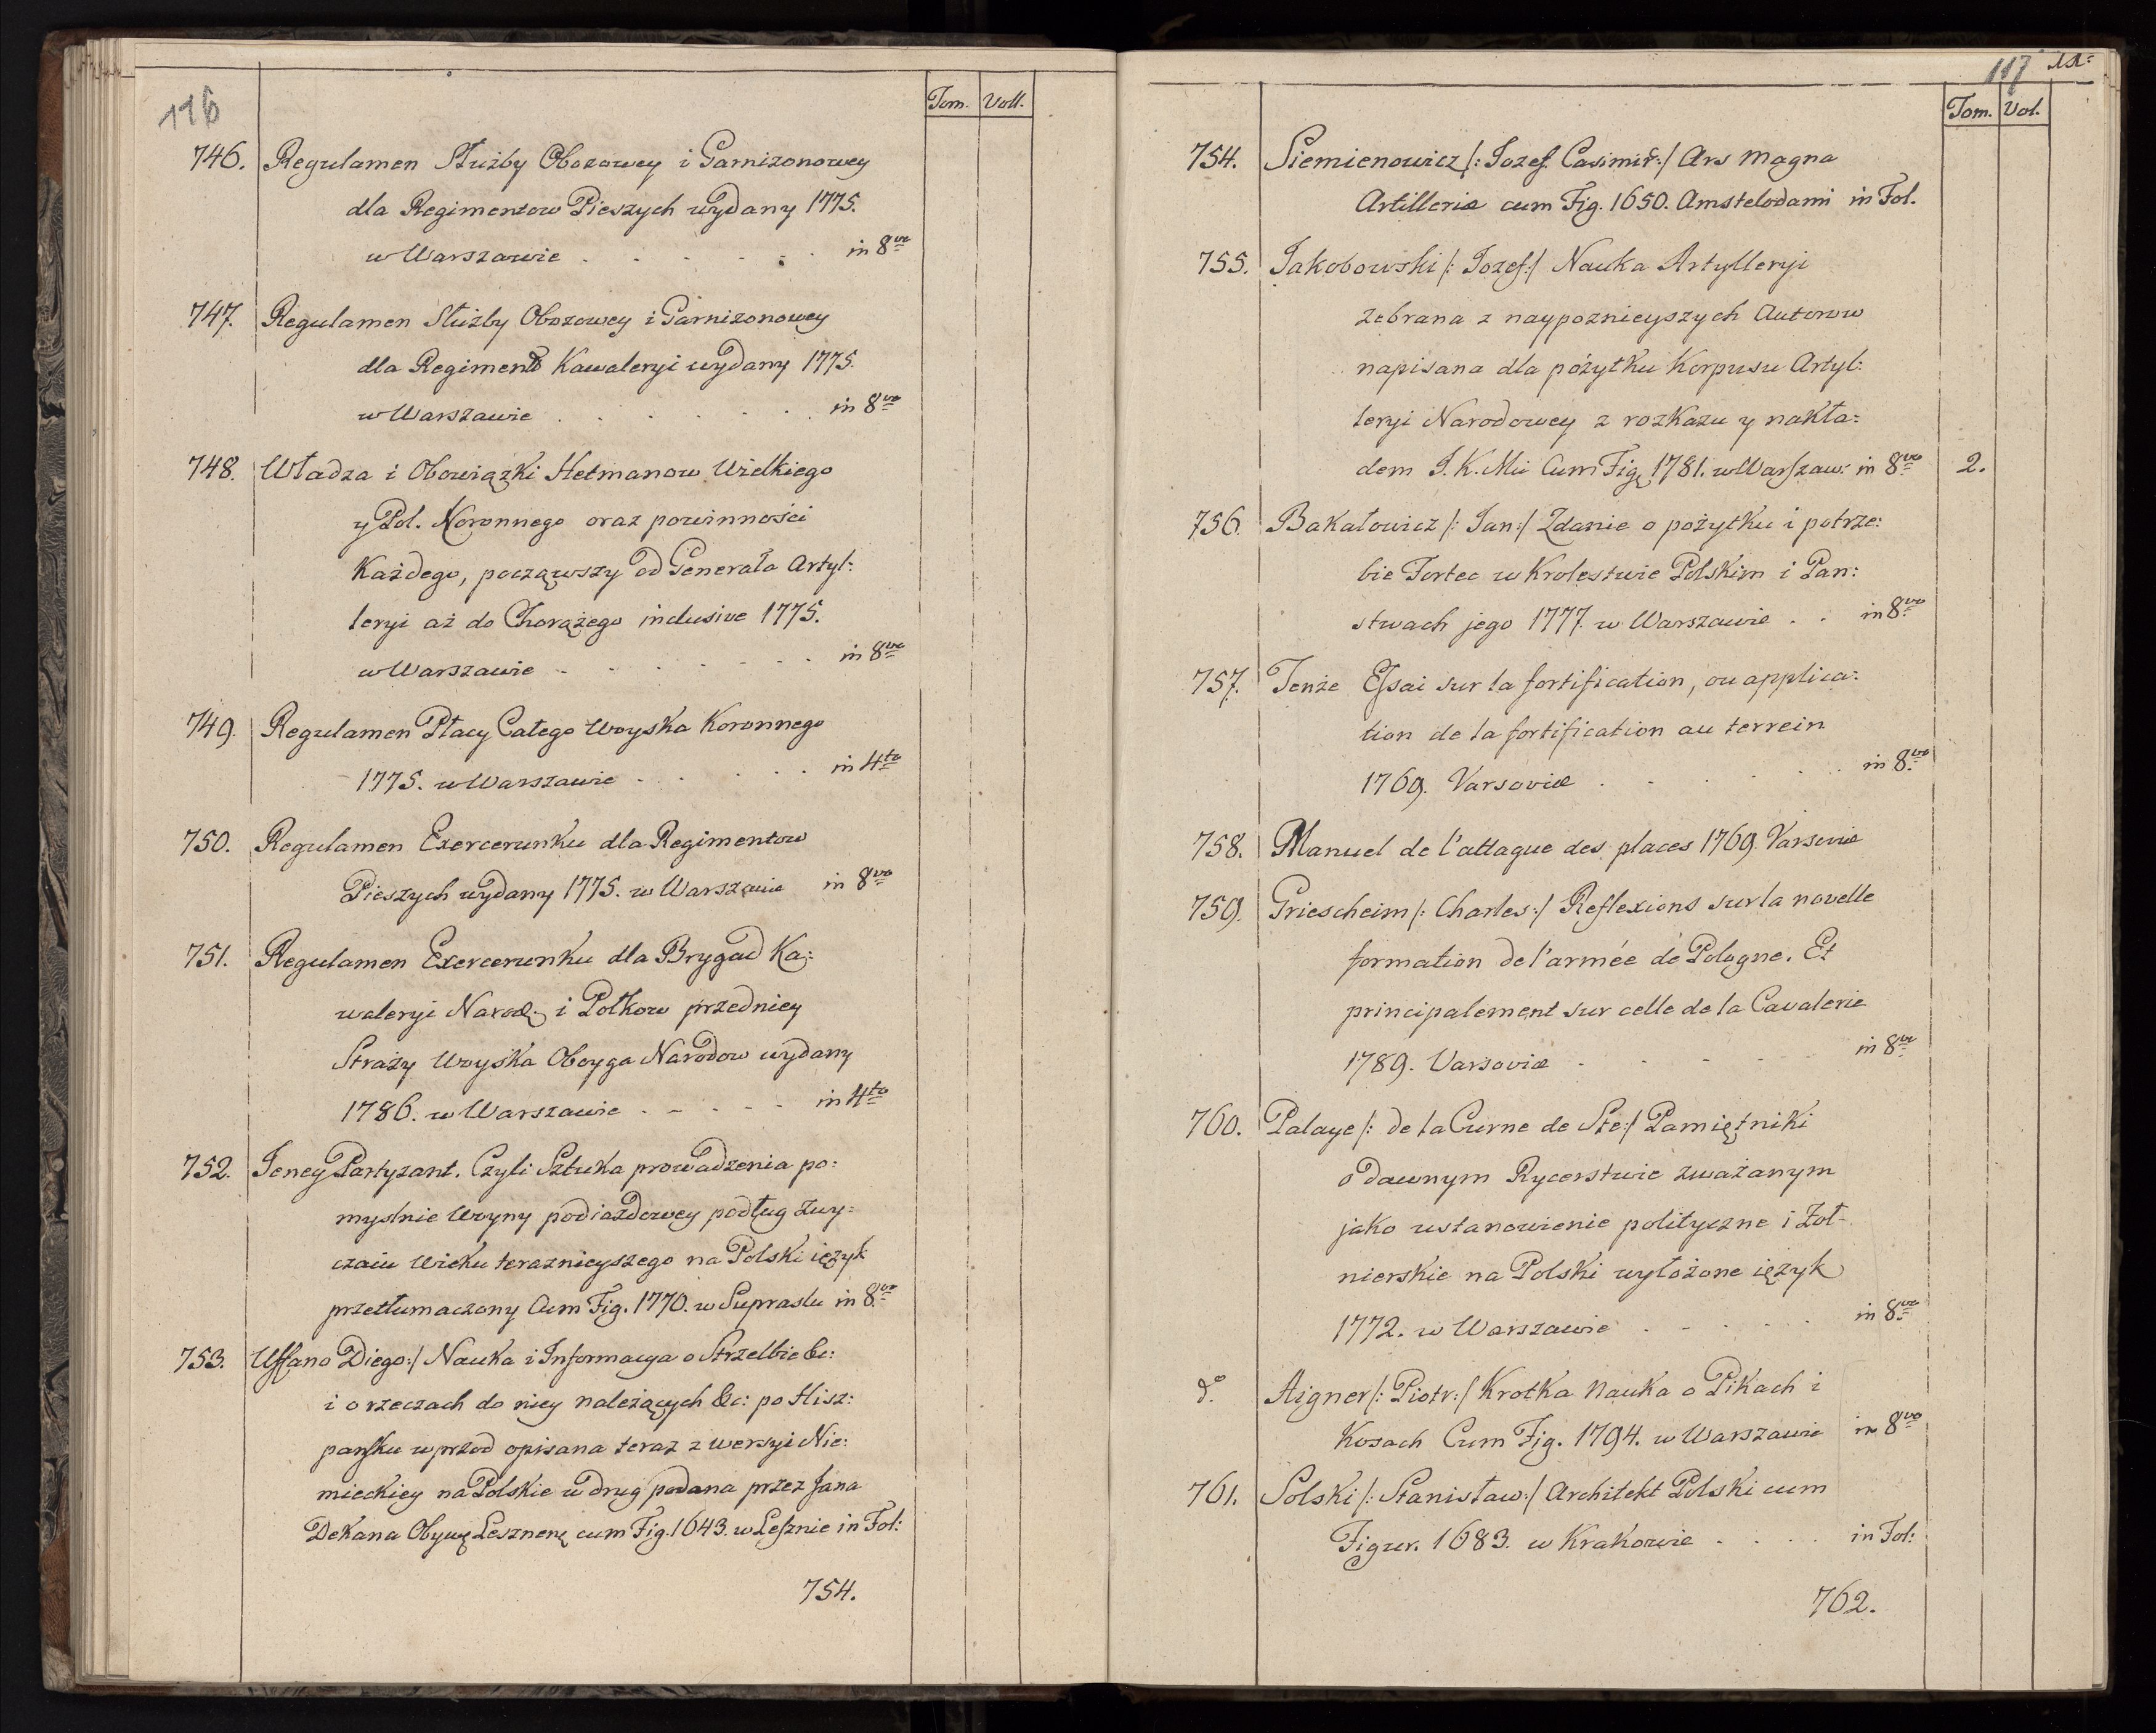 116
Tom. Voll.
746. Regulamen Służby Obozowey i Garnizonowey
dla Regimentow Pieszych wydany 1775.
w Warszawie . . . . . . in 8vo
747. Regulamen Służby Obozowey i Garnizonowey
dla Regiment Kawaleryi wydany 1775.
w Warszawie . . . . . . in 8vo
748. Władza i Obowiązki Hetmanow Wielkiego
y Pol. Koronnego oraz powinności
Każdego, począwszy od Generała Artyl:
leryi aż do Chorążego inclusive 1775.
w Warszawie . . . . . . in 8vo
749. Regulamen Płacy Całego Woyska Koronnego
1775. w Warszawie . . . . . in 4to
750. Regulamen Exercerunku dla Regimentow
Pieszych wydany 1775. w Warszawie in 8vo
751. Regulamen Exercerunku dla Brygad Ka:
waleryi Narod. i Połkow przedniey
Straży Woyska Oboyga Narodow wydany
1786. w Warszawie . . . . . in 4to
752. Jeney Partyzant. Czyli Sztuka prowadzenia po:
myslnie Woyny podiazdowey podług zwy:
czaiu wieku teraznieyszego na Polski ięzyk
przetłumaczony Cum Fig. 1770. w Supraslu in 8vo
753. Uffano Diego:/ Nauka i Informacya o Strzelbie &c:
i o rzeczach do niey należących &c: po Hisz:
pańsku wprzod opisana teraz z wersyi Nie:
mieckiey na Polskie w drug podana przez Jana
Dekana Obyw. Leszneń. cum Fig. 1643. w Lesznie in Fol:
754.
117
Tom. Vol.
754. Siemienowicz /: Jozef. Casimir:/ Ars magna
Artilleriæ cum Fig. 1650. Amstelodami in Fol.
755. Jakobowski /: Jozef:/ Nauka Artylleryi
zebrana z naypoznieyszych Autorow
napisana dla pożytku Korpusu Artyl:
leryi Narodowey z rozkazu y nakła:
dem J. K. Mci Cum Fig. 1781. w Warszaw: in 8vo 2.
756. Bakałowicz /: Jan:/ Zdanie o pożytku i potrze:
bie Fortec w Krolestwie Polskim i Pan:
stwach jego 1777. w Warszawie . . in 8vo
757. Tenże Essai sur la fortification, ou applica:
tion de la fortification au terrein
1769. Varsoviæ . . . . . in 8vo
758. Manuel de l'attaque des places 1769. Varsoviæ
759. Griescheim /: Charles:/ Reflexions sur la novelle
formation de l'armée de Pologne. Et
principalement sur celle de la Cavalerie
1789. Varsoviæ . . . . . in 8vo
760. Palaye /: de la Curne de Ste:/ Pamiętniki
o dawnym Rycerstwie zważanym
jako ustanowienie polityczne i żoł-
nierskie na Polski wyłożone ięzyk
1772. w Warszawie . . . . . in 8vo
do Aigner /: Piotr:/ Krotka Nauka o Pikach i
Kosach Cum Fig. 1794. w Warszawie in 8vo
761. Solski /: Stanisław:/ Architekt Polski cum
Figur. 1683. w Krakowie . . . . in Fol:
762.